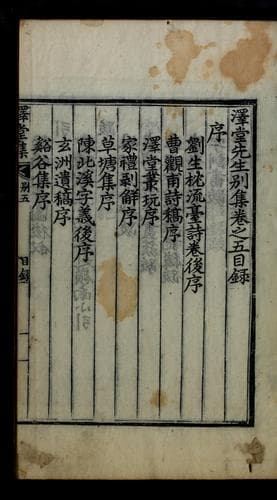 澤堂先生別集卷之五目錄
序
劉生枕流臺詩卷後序
曹觀甫詩稿序
澤堂叢玩序
家禮剝解序
草塘集序
陳北溪字義後序
玄洲遺稿序
谿谷集序
澤堂集 別五 目錄 一